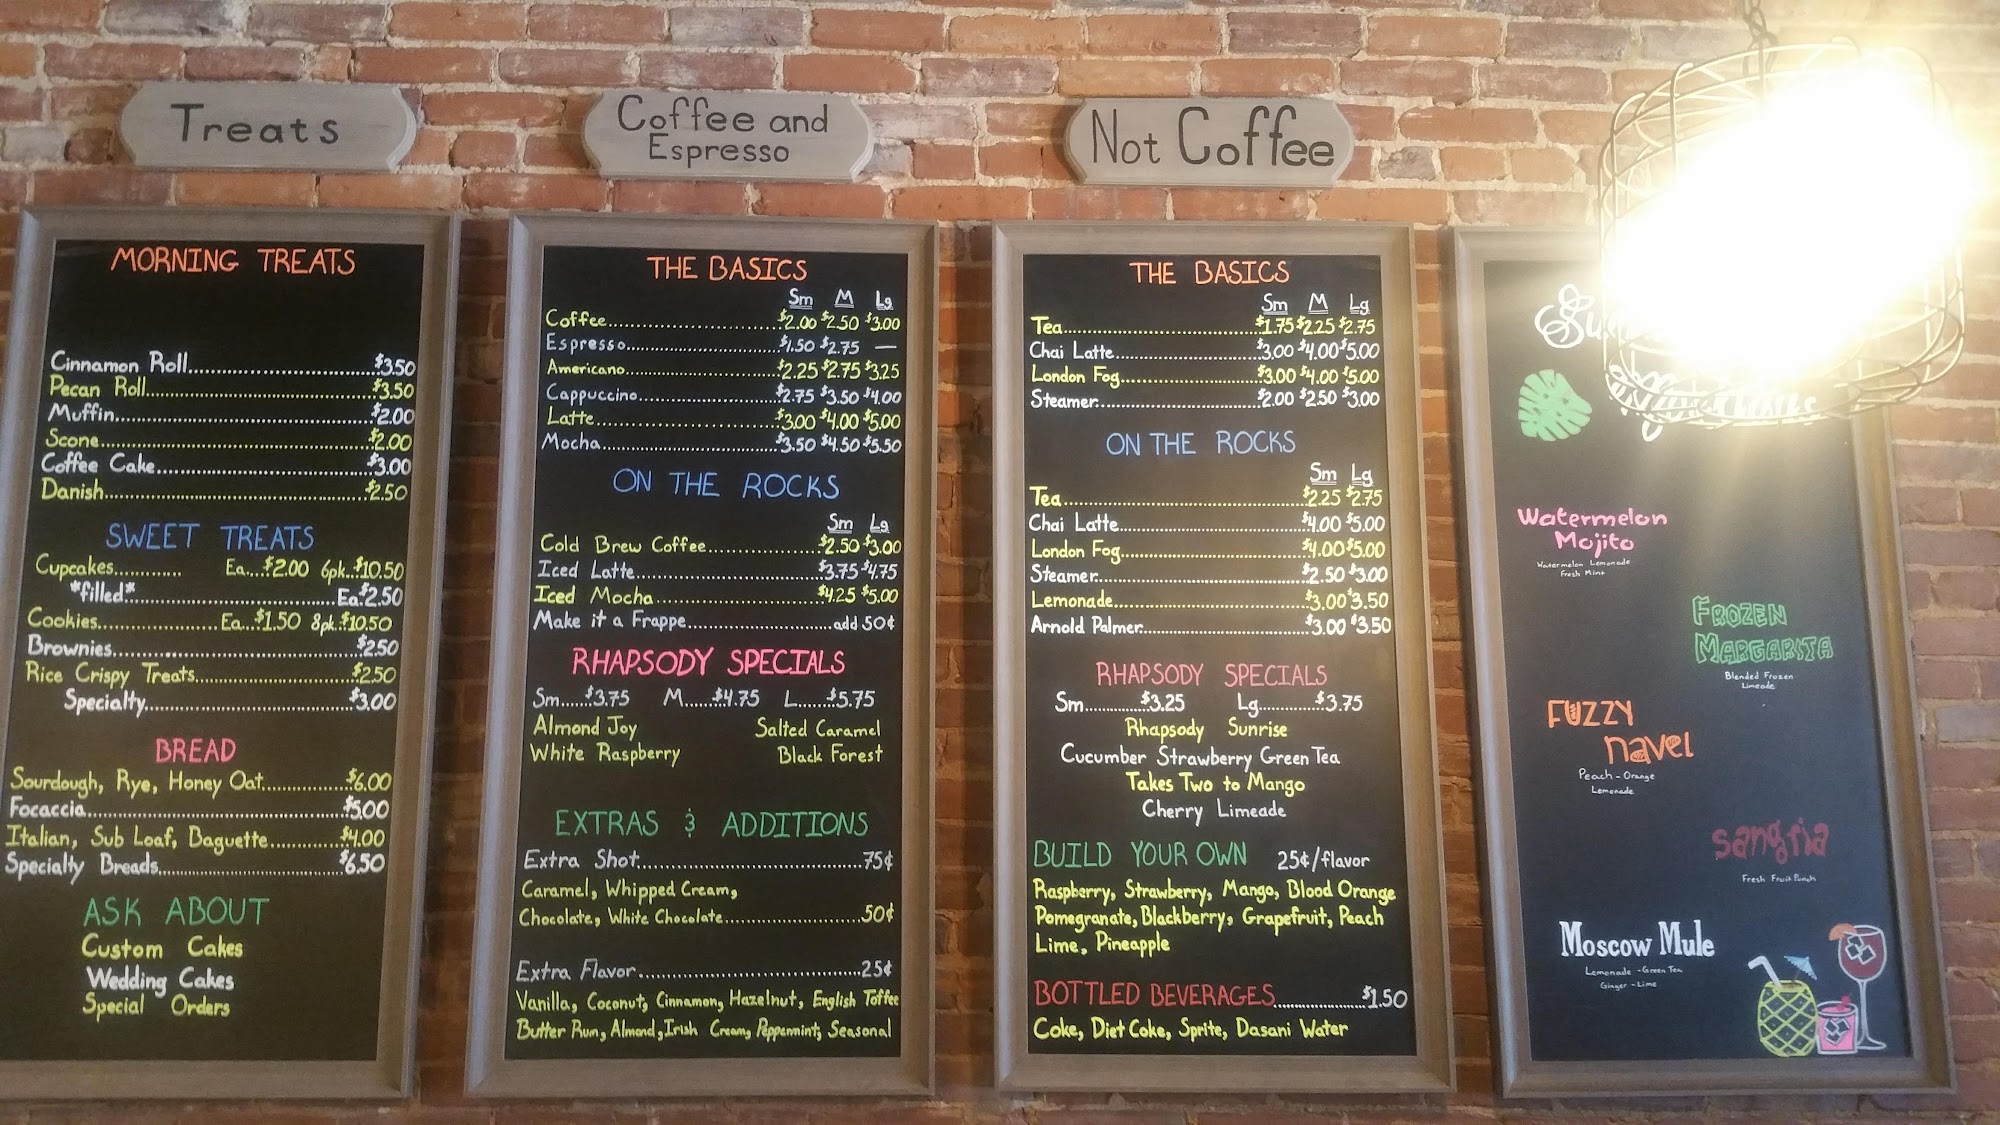 Treats
MORNING TREATS
Cinnamon Roll.......$3.50
Pecan Roll.......$3.50
Muffin.......$2.00
Scone.......$2.00
Coffee Cake.......$3.00
Danish.......$2.50
SWEET TREATS
Cupcakes....... Ea....$2.00 6pk..$10.50
*filled*.......Ea.$2.50
Cookies.......Ea...$1.50 8pk..$10.50
Brownies.......$2.50
Rice Crispy Treats.......$2.50
Specialty.......$3.00
BREAD
Sourdough, Rye, Honey Oat.......$6.00
Focaccia.......$5.00
Italian, Sub Loaf, Baguette.......$4.00
Specialty Breads.......$6.50
ASK ABOUT
Custom Cakes
Wedding Cakes
Special Orders
Coffee and
Espresso
THE BASICS
Sm M Lg
Coffee.......$2.00 $2.50 $3.00
Espresso.......$1.50 $2.75 —
Americano.......$2.25 $2.75 $3.25
Cappuccino.......$2.75 $3.50 $4.00
Latte.......$3.00 $4.00 $5.00
Mocha.......$3.50 $4.50 $5.50
ON THE ROCKS
Sm Lg
Cold Brew Coffee.......$2.50 $3.00
Iced Latte.......$3.75 $4.75
Iced Mocha.......$4.25 $5.00
Make it a Frappe.......add 50¢
RHAPSODY SPECIALS
Sm.....$3.75 M.....$4.75 L.....$5.75
Almond Joy Salted Caramel
White Raspberry Black Forest
EXTRAS & ADDITIONS
Extra Shot.......75¢
Caramel, Whipped Cream,
Chocolate, White Chocolate.......50¢
Extra Flavor.......25¢
Vanilla, Coconut, Cinnamon, Hazelnut, English Toffee
Butter Rum, Almond, Irish Cream, Peppermint, Seasonal
Not Coffee
THE BASICS
Sm M Lg
Tea.......$1.75 $2.25 $2.75
Chai Latte.......$3.00 $4.00 $5.00
London Fog.......$3.00 $4.00 $5.00
Steamer.......$2.00 $2.50 $3.00
ON THE ROCKS
Sm Lg
Tea.......$2.25 $2.75
Chai Latte.......$4.00 $5.00
London Fog.......$4.00 $5.00
Steamer.......$2.50 $3.00
Lemonade.......$3.00 $3.50
Arnold Palmer.......$3.00 $3.50
RHAPSODY SPECIALS
Sm.......$3.25 Lg.......$3.75
Rhapsody Sunrise
Cucumber Strawberry Green Tea
Takes Two to Mango
Cherry Limeade
BUILD YOUR OWN 25¢/flavor
Raspberry, Strawberry, Mango, Blood Orange
Pomegranate, Blackberry, Grapefruit, Peach
Lime, Pineapple
BOTTLED BEVERAGES.......$1.50
Coke, Diet Coke, Sprite, Dasani Water
Watermelon
Mojito
Watermelon Lemonade
Fresh Mint
FROZEN
MARGARITA
Blended Frozen
Limeade
FUZZY
navel
Peach-Orange
Lemonade
sangria
Fresh Fruit Punch
Moscow Mule
Lemonade-Green Tea
Ginger-Lime